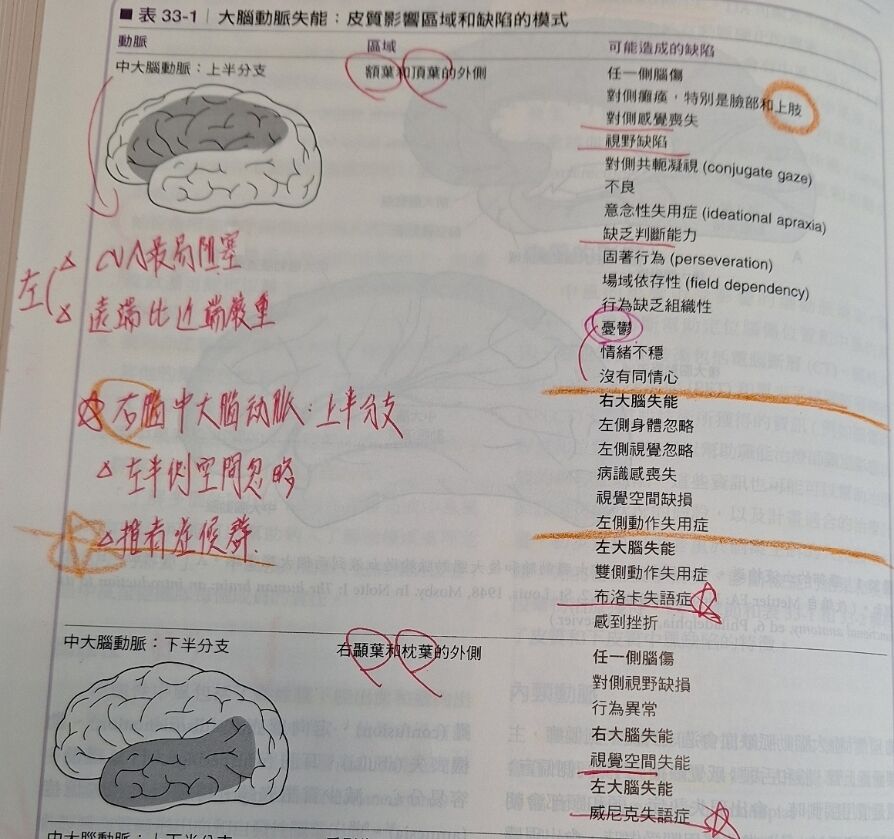 表 33-1 | 大腦動脈失能：皮質影響區域和缺陷的模式
動脈 區域 可能造成的缺陷
中大腦動脈：上半分支 額葉和頂葉的外側 任一側腦傷
對側癱瘓，特別是臉部和上肢
對側感覺喪失
視野缺陷
對側共軛凝視 (conjugate gaze)
不良
意念性失用症 (ideational apraxia)
缺乏判斷能力
固著行為 (perseveration)
場域依存性 (field dependency)
行為缺乏組織性
憂鬱
情緒不穩
沒有同情心
右大腦失能
左側身體忽略
左側視覺忽略
病識感喪失
視覺空間缺損
左側動作失用症
左大腦失能
雙側動作失用症
布洛卡失語症
感到挫折
左
CVA最易阻塞
遠端比近端嚴重
右腦中大腦动脈：上半分支
左半側空間忽略
推者症候群
中大腦動脈：下半分支 右顳葉和枕葉的外側 任一側腦傷
對側視野缺損
行為異常
右大腦失能
視覺空間失能
左大腦失能
威尼克失語症